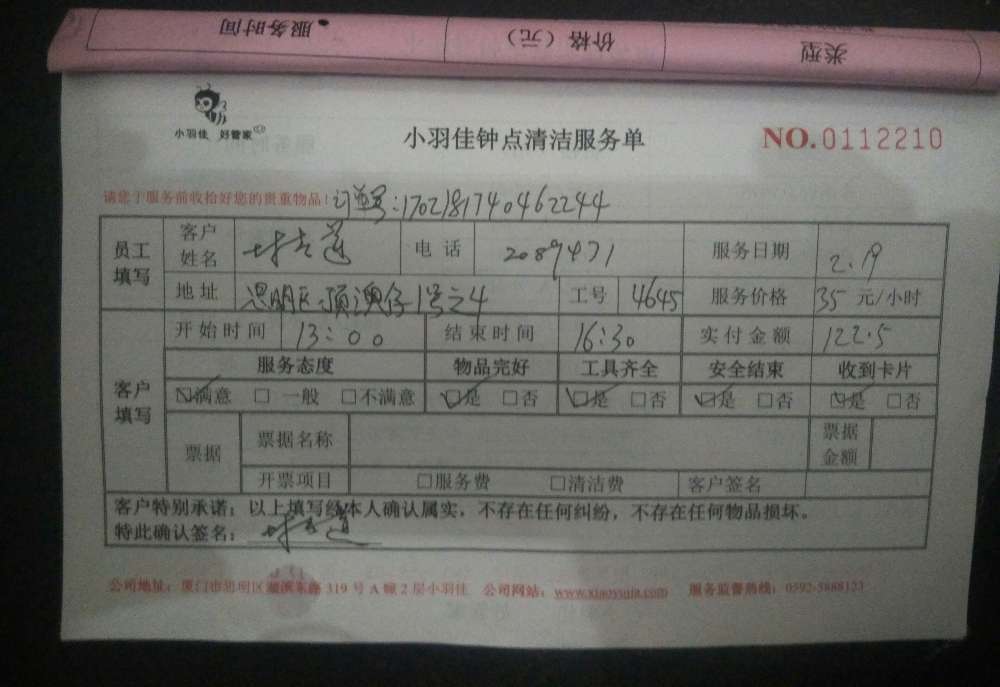 服务时间 价格（元） 类型
小羽佳 好管家
小羽佳钟点清洁服务单
NO.0112210
请您于服务前收拾好您的贵重物品！订单号:1702181740462244
员工填写 客户姓名 电话 2089471 服务日期 2.19
地址 思明区顶澳仔1号之4 工号 4645 服务价格 35 元/小时
客户填写 开始时间 13:00 结束时间 16:30 实付金额 122.5
服务态度 物品完好 工具齐全 安全结束 收到卡片
满意 一般 不满意 是 否 是 否 是 否 是 否
票据 票据名称 票据金额
开票项目 服务费 清洁费 客户签名
客户特别承诺：以上填写经本人确认属实，不存在任何纠纷，不存在任何物品损坏。
特此确认签名：
公司地址：厦门市思明区湖滨东路 319 号 A 幢 2 层小羽佳 公司网站：www.xiaoyujia.com 服务监督热线：0592-5888123